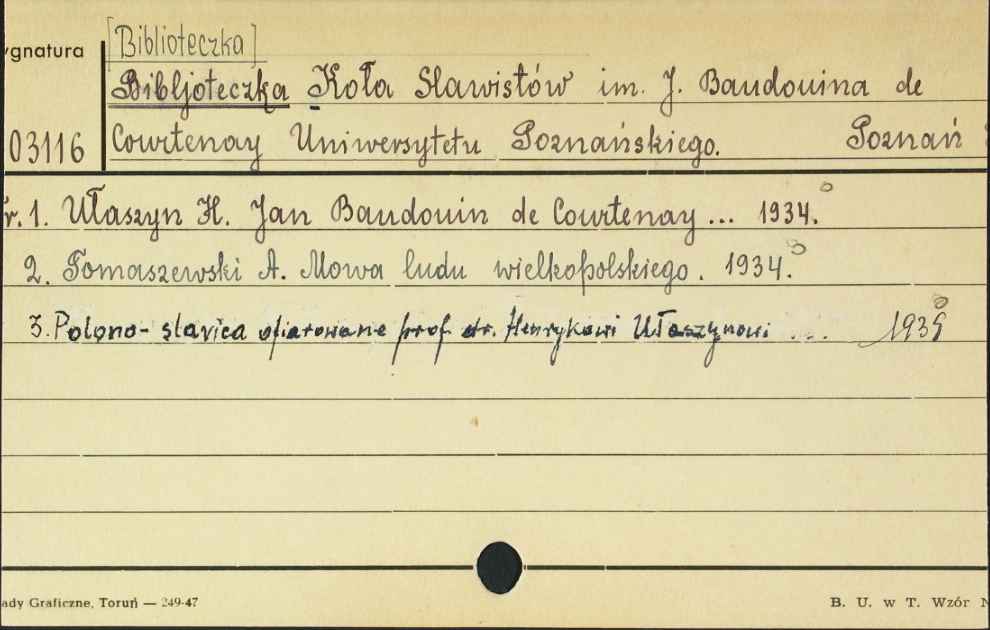 [Biblioteczka]
ygnatura
Bibljoteczka Koła Slawistów im. J. Baudouina de
03116 Courtenay Uniwersytetu Poznańskiego. Poznań
r. 1. Ułaszyn H. Jan Baudouin de Courtenay ... 1934.
2. Tomaszewski A. Mowa ludu wielkopolskiego. 1934.
3. Polono-slavica ofiarowane prof dr. Henrykowi Ułaszynowi .... 1939
ady Graficzne, Toruń — 249-47 B. U. w T. Wzór N